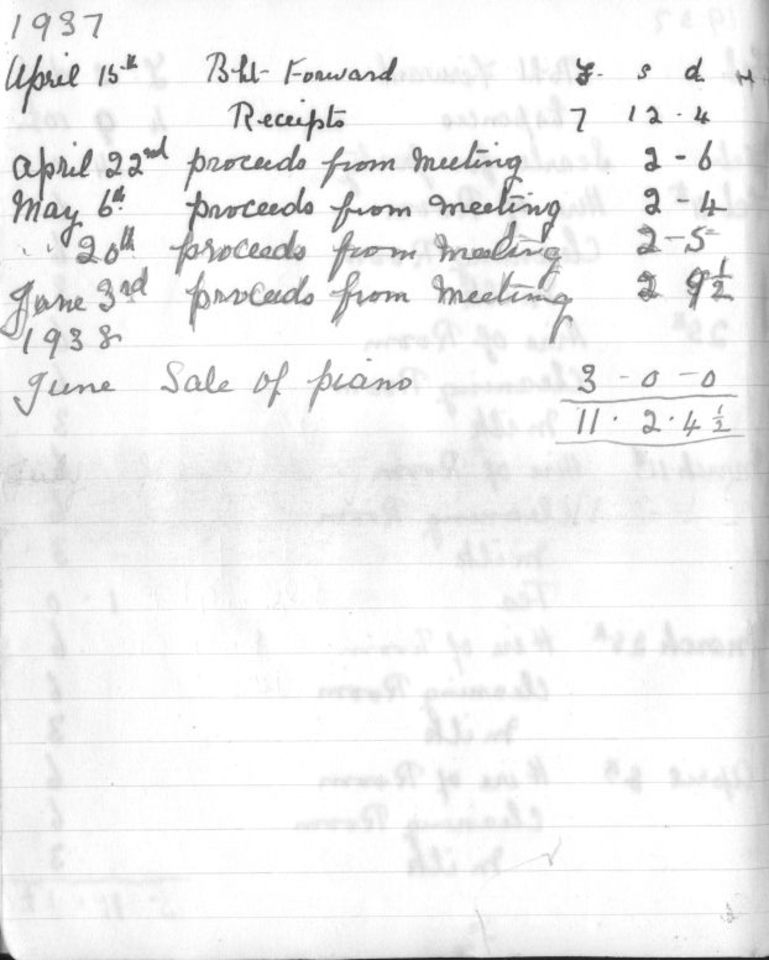 1937
April 15th Bht Forward £. s d
Receipts 7 12.4
April 22nd proceeds from Meeting 2-6
May 6th proceeds from meeting 2-4
" 20th proceeds from Meeting 2-5
June 3rd proceeds from Meeting 2 9½
1938
June Sale of piano 3-0-0
11.2.4½